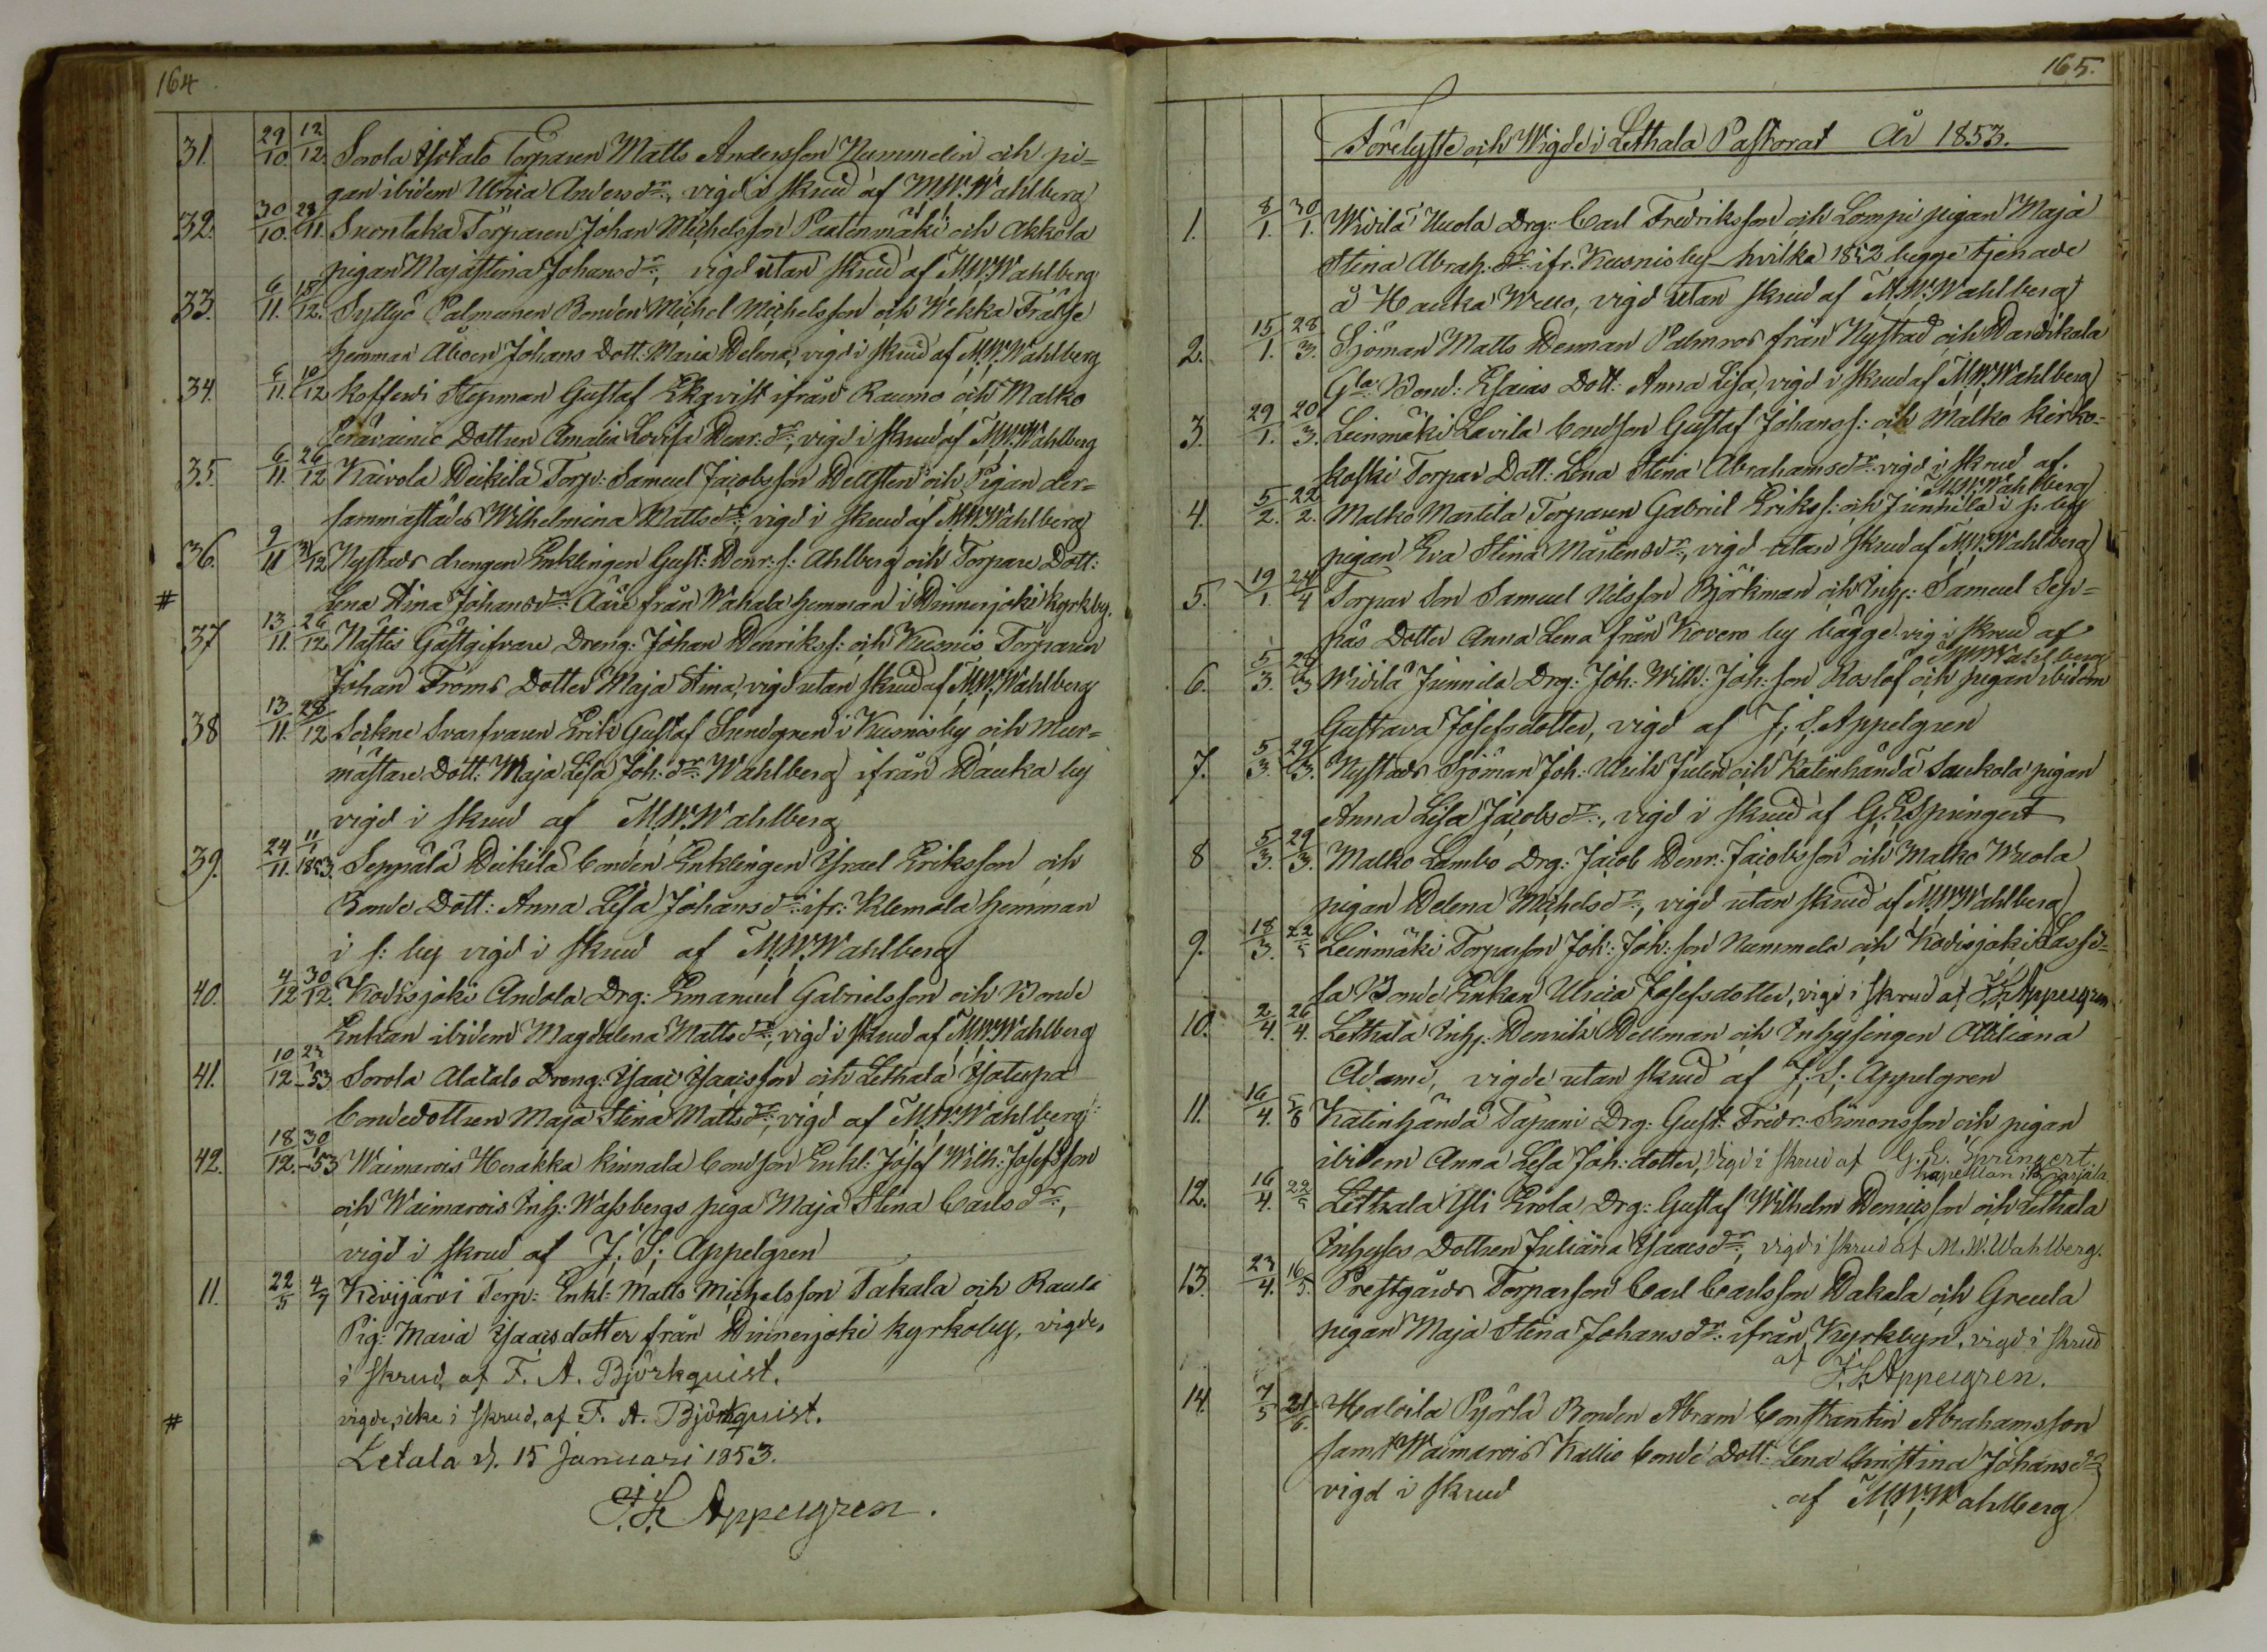 164.
31. 29/10. 12/12. Sorola Ylotalo Torparen Matts Andersson Nummelin och pi=
gan ibidem Ulrica Andersdr:, vigd i skrud af M.W.Wahlberg
32. 30/10. 28/11. Suontaka Torparen Johan Michelsson Paatenmäki och Akkola
pigan Majastina Johansdr:, vigd utan skrud af M.W.Wahlberg
33. 6/11. 15/12. Syllyö Palmunen Bonden Michel Michelsson och Wekka Frälse
hemman Åboen Johans Dott. Maria Helena, vigd i skrud af M.W.Wahlberg
34. 6/11. 10/12 Kofferdi Styrman Gustaf Ekqvist ifrån Raumo och Malko
Perävainio Dottren Amalia Lovisa Henr:dr:, vigd i skrud af M.W.Wahlberg
35. 6/11. 26/12 Kaivola Heikilä Torp: Samuel Jacobsson Hellsten och Pigan der=
sammastädes Wilhelmina Mattsdr: vigd i skrud af M.W.Wahlberg
36. 9/11 31/12 Nystads drengen Enklingen Gust: Henr: s: Ahlberg och Torpare Dott:
# Lena Stina Johansdr: Ääri från Wahala hemman i Hinnerjoki kyrkby.
37 13/11. 26/12 Nästis Gästgifvare Dreng: Johan Henrikss: och Kusnis Torparen
Johan Froms Dotter Maja Stina, vigd utan skrud af M.W.Wahlberg
38 13/11. 28/12 Sockne Svarfvaren Erik Gustaf Sundgren i Kusnisby och Mur=
mästare Dott: Maja Lisa Joh:dr: Wahlberg ifrån Hauka by
vigd i skrud af M.W.Wahlberg
39. 24/11. 11/1 1853. Seppälä Heikilä bonden Enklingen Ysrael Eriksson och
Bonde Dott: Anna Lisa Johansdr: ifr: Klemola hemman
i s: by vigd i skrud af M.W.Wahlberg
40. 4/12 30/12. Kodisjoki Andola Drg: Emanuel Gabrielsson och Bonde
Enkan ibidem Magdalena Mattsdr:, vigd i skrud af M.W.Wahlberg
41. 10/12 23/1 -53 Sorola Alatalo Dreng: Ysaac Ysacsson och Lethala Ylotupa
bondedottren Maja Stina Mattsdr:, vigd af M.W.Wahlberg:
42. 18/12. 30/1 -53 Waimarois Horakka kinnala bondson Enkl: Josef Wilh: Josefsson
och Waimarois Inh: Wassbergs piga Maja Stina Carlsdr:,
vigd i skrud af J. S. Appelgren
11. 22/5 4/7 Kivijärvi Torp: Enkl: Matts Michelsson Takala och Rauli
Pig: Maria Ysacsdotter från Hinnerjoki kyrkoby, vigde,
i skrud, af F. A. Björkquist.
# vigde, icke i skrud, af F. A. Björkquist.
Letala d. 15 Januari 1853.
J. S. Appelgren.
165.
Förelyste och Wigde i Lethala Pastorat År 1853.
1. 8/1. 30/1. Widilä Uuola Drg: Carl Fredriksson och Lampi pigan Maja
Stina Abrah:dr: ifr. Kusnisby hvilka 1852 begge tjenade
å Hauka Wuo, vigd utan skrud af M.W.Wahlberg
2. 15/1. 28/3. Sjöman Matts Herman Palmros från Nystad och Haudikala
Gla. Bond: Esaias Dott: Anna Lisa, vigd i skrud af M.W.Wahlberg
3. 29/1. 20/3. Leinmäki Lavila bondson Gustaf Johanss: och Malko kirko=
koski Torpar Dott: Lena Stina Abrahamsdr: vigd i skrud af
M.W.Wahlberg
4. 5/2. 22/2. Malko Martila Torparen Gabriel Erikss: och Junnila i s: by
pigan Eva Stina Mårtensdr:, vigd utan skrud af M.W.Wahlberg
5. 19/1. 24/4 Torpar Son Samuel Nilsson Björkman och Inh: Samuel Sep=
päs Dotter Anna Lena från Kovero by bägge. vig i skrud af
M.W.Wahlberg
6. 5/3. 28/3 Widilä Junnila Drg: Joh: Wilh: Joh:son Roslöf och pigan ibidem
Gustava Josefsdotter, vigd af J. S. Appelgren
7. 5/3. 29/3. Nystads Sjöman Joh: Ulrik Julin och Katinhändä Saukola pigan
Anna Lisa Jacobsdr:, vigd i skrud af G. E. Springert
8 5/3. 29/3. Malko Lambo Drg: Jacob Henr: Jacobsson och Malko Wuola
pigan Helena Michelsdr:, vigd utan skrud af M.W.Wahlberg
9. 18/3. 22/5 Leinmäki Torparson Joh: Joh:son Nummela och Kodisjoki Lassi=
la Bonde Enkan Ulrica Josefsdotter, vigd i skrud af J. S. Appelgren
10. 2/4. 26/4. Lethala Inh: Henrik Hellman och Inhysingen Attiliana
Adami, vigde utan skrud af J. S. Appelgren
11. 16/4. 5/6 Katinhändä Tapani Drg: Gust: Fredr: Simonsson och pigan
ibidem Anna Lisa Joh:dotter, Vigd i skrud af G. E. Springert
Kapellan i Karjala.
12. 16/4. 22/5 Lethala Ylli Erola Drg: Gustaf Wilhelm Henricsson och Lethala
Inhyses Dottren Juliana Ysacsdr:, vigd i skrud af M. W. Wahlberg.
13. 23/4. 16/5. Prestgårds Torparson Carl Carlsson Hakala och Greula
pigan Maja Stina Johansdr: ifrån Kyrkbyn, vigd i skrud
af J. S. Appelgren.
14. 7/5 21/6. Haloila Pyörlä Bonden Abram Constantin Abrahamsson
samt Waimarois Kallio bonde Dott: Lena Christina Johansdr
vigd i skrud af M.W.Wahlberg